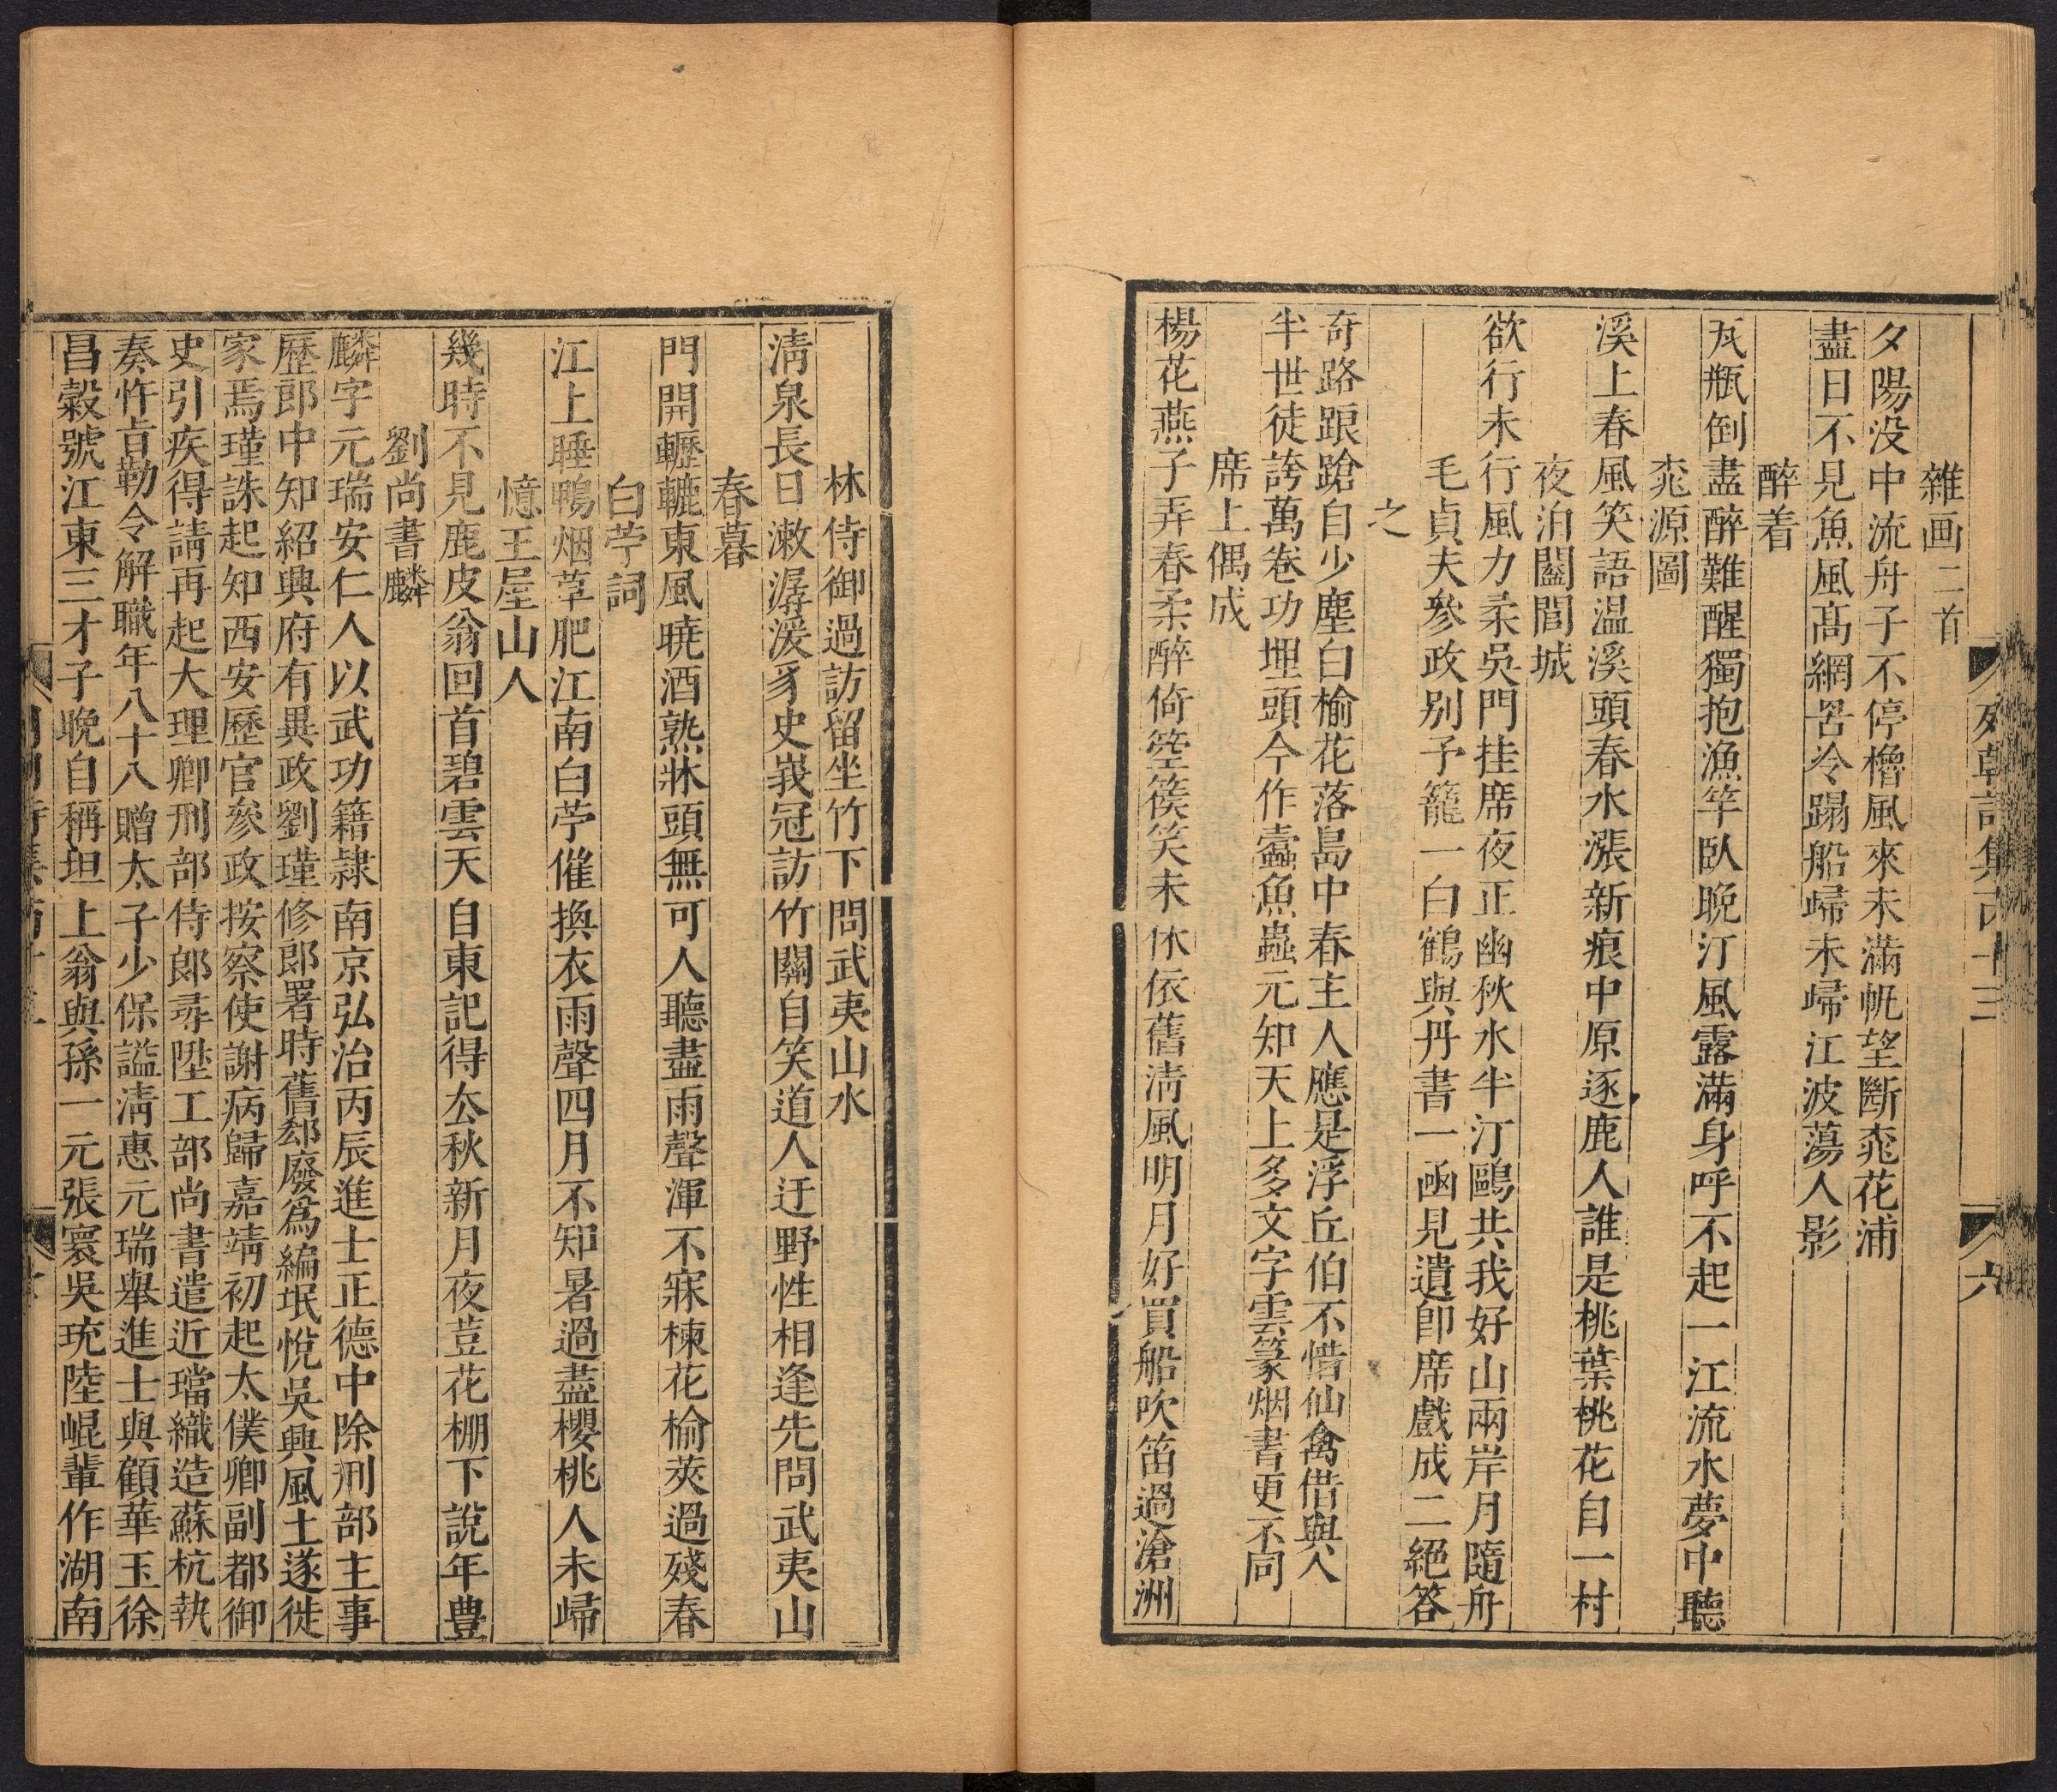 雜画二首
夕陽没中流舟子不停櫓風來未滿帆望斷桃花浦
盡日不見魚風髙網罟冷蹋船歸未歸江波蕩人影
醉着
瓦瓶倒盡醉難醒獨抱漁竿臥晚汀風露滿身呼不起一江流水夢中聽
桃源圖
溪上春風笑語温溪頭春水漲新痕中原逐鹿人誰是桃葉桃花自一村
夜泊闔閭城
欲行未行風力柔吳門挂席夜正幽秋水半汀鷗共我好山兩岸月隨舟
毛貞夫參政别予籠一白鶴與丹書一函見遺卽席戲成二絕答
之
奇路踉蹌自少塵白榆花落島中春主人應是浮丘伯不惜仙禽借與人
半世徒誇萬卷功埋頭今作蠧魚蟲元知天上多文字雲篆烟書更不同
席上偶成
楊花燕子弄春柔醉倚箜篌笑未休依舊淸風明月好買船吹笛過滄洲
列朝詩集丙十三
六
林侍御過訪留坐竹下問武夷山水
淸泉長日漱潺湲豸史峩冠訪竹關自笑道人迂野性相逢先問武夷山
春暮
門開轣轆東風曉酒熟牀頭無可人聽盡雨聲渾不寐楝花榆莢過殘春
白苧詞
江上睡鴨烟草肥江南白苧催換衣雨聲四月不知暑過盡櫻桃人未歸
憶王屋山人
幾時不見鹿皮翁回首碧雲天自東記得厺秋新月夜荳花棚下說年豊
劉尚書麟
麟字元瑞安仁人以武功籍隷南京弘治丙辰進士正德中除刑部主事
歷郎中知紹興府有異政劉瑾修郎署時舊郄廢爲編氓悅吳興風土遂徙
家焉瑾誅起知西安歷官參政按察使謝病歸嘉靖初起太僕卿副都御
史引疾得請再起大理卿刑部侍郎尋陞工部尚書遣近璫織造蘇杭執
奏忤旨勒令解職年八十八贈太子少保謚淸惠元瑞舉進士與顧華玉徐
昌穀號江東三才子晚自稱坦上翁與孫一元張寰吳珫陸崐輩作湖南